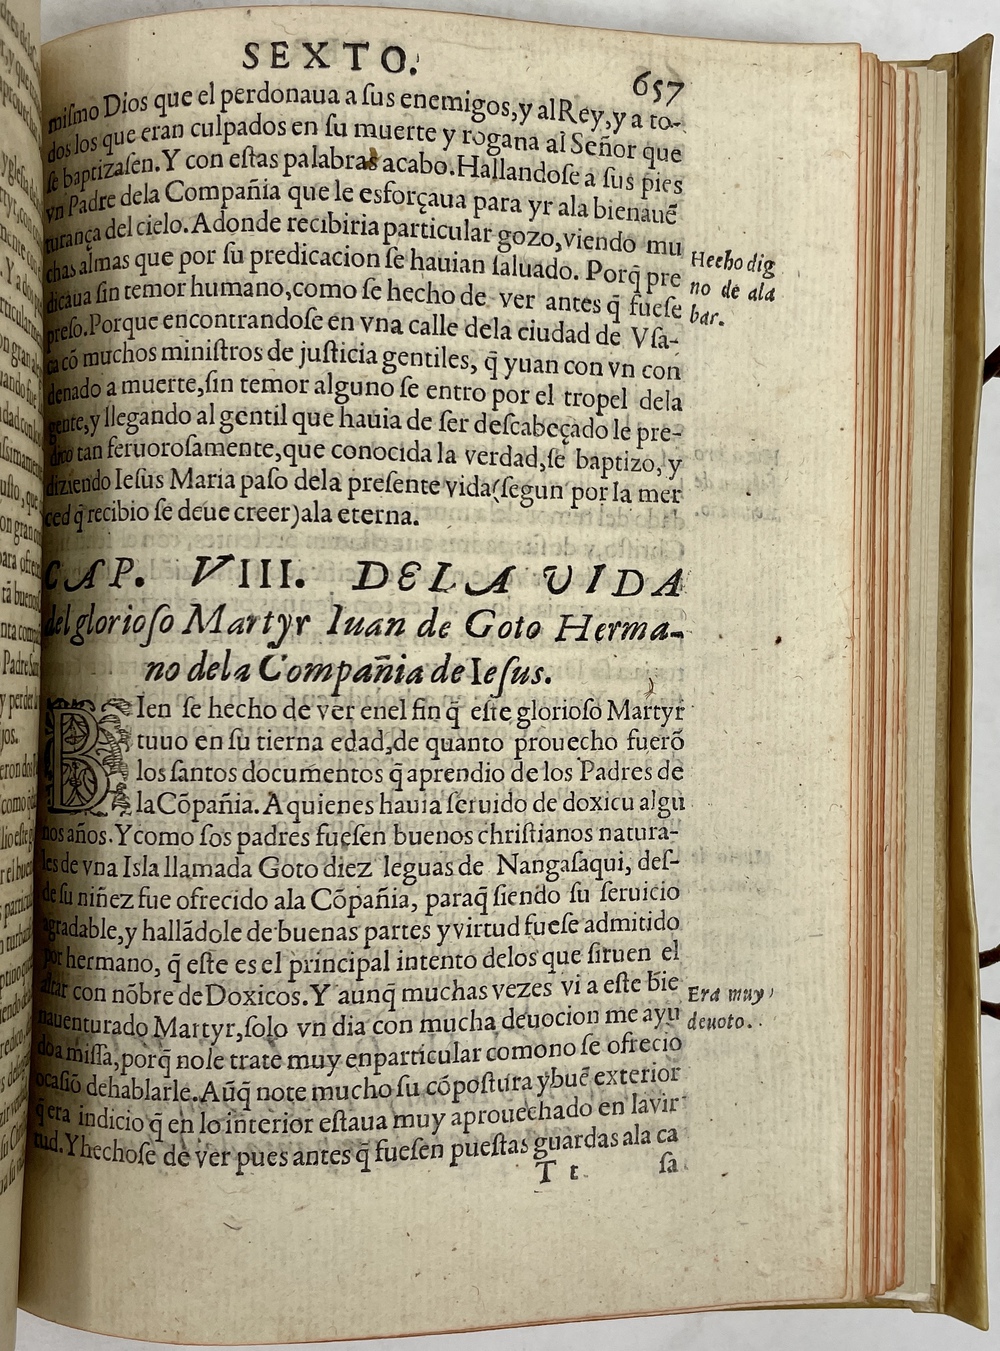 SEXTO.
657
miſmo Dios que el perdonaua a ſus enemigos,y al Rey,y a to-
dos los que eran culpados en ſu muerte y rogana al Señor que
ſe baptizaſen. Y con eſtas palabras acabo. Hallandoſe a ſus pies
vn Padre dela Compañia que le esforçaua para yr ala bienauẽ
turança del cielo. Adonde recibiria particular gozo,viendo mu
chas almas que por ſu predicacion ſe hauian ſaluado. Porq̃ pre
dicaua ſin temor humano,como ſe hecho de ver antes q̃ fueſe
preſo.Porque encontrandoſe en vna calle dela ciudad de Vſa-
ca cõ muchos miniſtros de juſticia gentiles, q̃ yuan con vn con
denado a muerte,ſin temor alguno ſe entro por el tropel dela
gente,y llegando al gentil que hauia de ſer deſcabeçado le pre-
dico tan feruoroſamente,que conocida la verdad,ſe baptizo, y
diziendo Ieſus Maria paſo dela preſente vida(ſegun por la mer
ced q̃ recibio ſe deue creer)ala eterna.
Hecho dig
no de ala
bar.
CAP. VIII. DELA VIDA
del glorioſo Martyr Iuan de Goto Herma-
no dela Compañia de Ieſus.
BIen ſe hecho de ver enel fin q̃ eſte glorioſo Martyr
tuuo en ſu tierna edad,de quanto prouecho fuerõ
los ſantos documentos q̃ aprendio de los Padres de
la Cõpañia. A quienes hauia ſeruido de doxicu algu
nos años. Y como ſos padres fueſen buenos chriſtianos natura-
les de vna Isla llamada Goto diez leguas de Nangaſaqui, deſ-
de ſu niñez fue ofrecido ala Cõpañia, paraq̃ ſiendo ſu ſeruicio
agradable,y hallãdole de buenas partes y virtud fueſe admitido
por hermano, q̃ eſte es el principal intento delos que ſiruen el
altar con nõbre de Doxicos. Y aunq̃ muchas vezes vi a eſte bie
nauenturado Martyr,ſolo vn dia con mucha deuocion me ayu
do a miſſa,porq̃ nole trate muy enparticular comono ſe ofrecio
ocaſiõ dehablarle. Aũq̃ note mucho ſu cõpoſtura y buẽ exterior
q̃ era indicio q̃ en lo interior eſtaua muy aprouechado en la vir
tud. Y hechoſe de ver pues antes q̃ fueſen pueſtas guardas ala ca
Era muy
deuoto.
T t
ſa